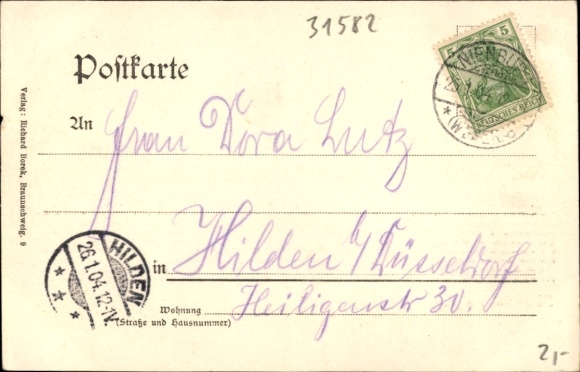 31582
5 5
NIENBURG
(WESER)
DEUTSCHES REICH
Postkarte
An Frau Dora Lutz
in Hilden b/Düsseldorf
Wohnung Heiligenstr 30.
(Straße und Hausnummer)
HILDEN
26.1.04.12-1V.
Verlag: Richard Borek, Braunschweig. 9
2,-